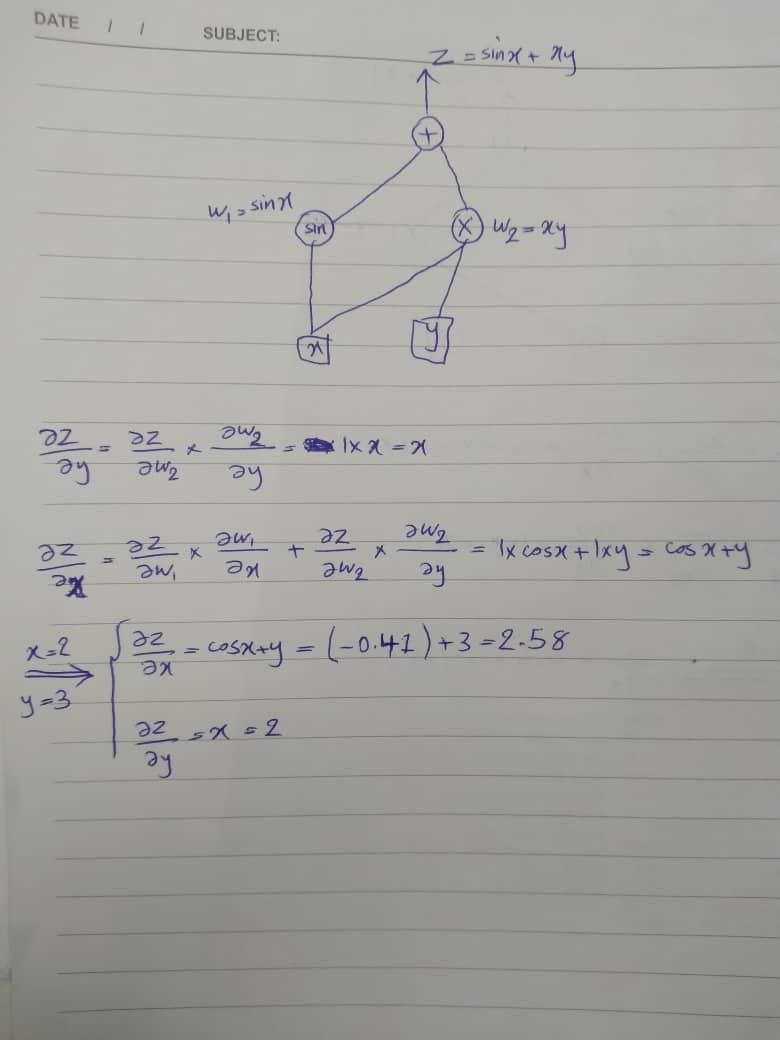 DATE / / SUBJECT:
z = sinx + xy
+
w₁ = sinx
sin
× w₂ = xy
x
y
∂z/∂y = ∂z/∂w₂ × ∂w₂/∂y = 1 × x = x
∂z/∂x = ∂z/∂w₁ × ∂w₁/∂x + ∂z/∂w₂ × ∂w₂/∂y = 1 × cosx + 1 × y = cosx + y
x = 2
y = 3
∂z/∂x = cosx + y = (-0.41) + 3 = 2.58
∂z/∂y = x = 2